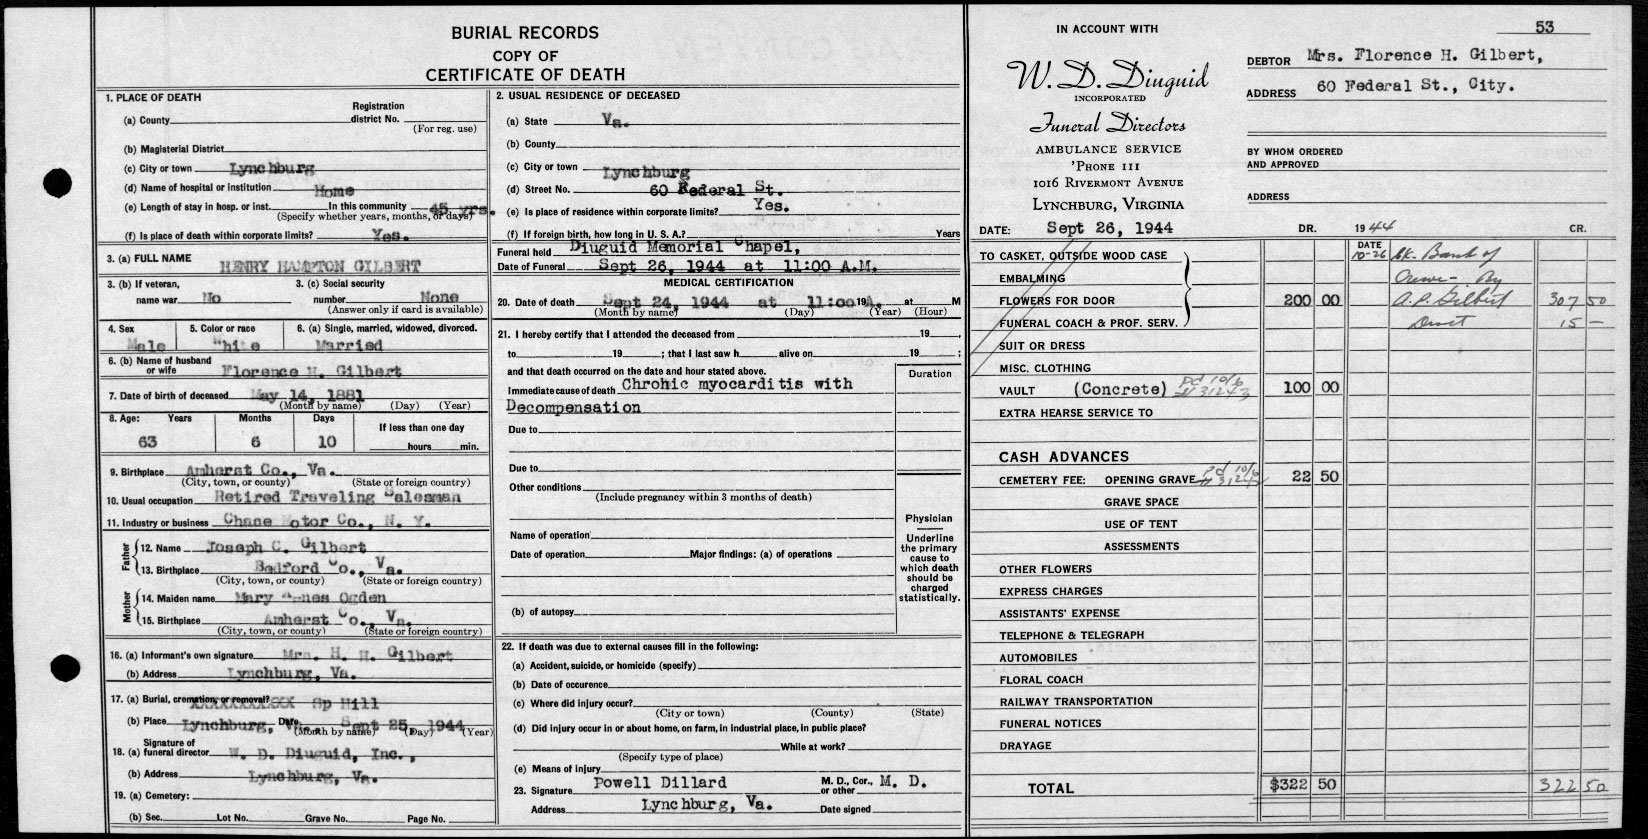 BURIAL RECORDS
COPY OF
CERTIFICATE OF DEATH
1. PLACE OF DEATH
Registration
(a) County district No.
(For reg. use)
(b) Magisterial District
(c) City or town Lynchburg
(d) Name of hospital or institution Home
(e) Length of stay in hosp. or inst. In this community 45 yrs.
(Specify whether years, months, or days)
(f) Is place of death within corporate limits? Yes.
3. (a) FULL NAME HENRY HAMPTON GILBERT
3. (b) If veteran, 3. (c) Social security
name war No number None
(Answer only if card is available)
4. Sex 5. Color or race 6. (a) Single, married, widowed, divorced.
Male "hite Married
6. (b) Name of husband
or wife Florence H. Gilbert
7. Date of birth of deceased May 14, 1881
(Month by name) (Day) (Year)
8. Age: Years Months Days If less than one day
63 6 10 hours min.
9. Birthplace Amherst Co., Va.
(City, town, or county) (State or foreign country)
10. Usual occupation Retired Traveling Salesman
11. Industry or business Chase Motor Co., N. Y.
Father
12. Name Joseph C. Gilbert
13. Birthplace Bedford Co., Va.
(City, town, or county) (State or foreign country)
Mother
14. Maiden name Mary Agnes Ogden
15. Birthplace Amherst Co., Va.
(City, town, or county) (State or foreign country)
16. (a) Informant's own signature Mrs. H. H. Gilbert
(b) Address Lynchburg, Va.
17. (a) Burial, cremation, or removal? Sp Hill
(b) Place Lynchburg, Va. Date Sept 25, 1944
(Month by name) (Day) (Year)
Signature of
18. (a) funeral director W. D. Diuguid, Inc.,
(b) Address Lynchburg, Va.
19. (a) Cemetery:
(b) Sec. Lot No. Grave No. Page No.
2. USUAL RESIDENCE OF DECEASED
(a) State Va.
(b) County
(c) City or town Lynchburg
(d) Street No. 60 Federal St.
(e) Is place of residence within corporate limits? Yes.
(f) If foreign birth, how long in U. S. A.? Years
Funeral held Diuguid Memorial Chapel,
Date of Funeral Sept 26, 1944 at 11:00 A.M.
MEDICAL CERTIFICATION
20. Date of death Sept 24, 1944 at 11:00 19 A. at M
(Month by name) (Day) (Year) (Hour)
21. I hereby certify that I attended the deceased from 19 ,
to 19 ; that I last saw h alive on 19 ;
and that death occurred on the date and hour stated above. Duration
Immediate cause of death Chrohic myocarditis with
Decompensation
Due to
Due to
Other conditions
(Include pregnancy within 3 months of death)
Name of operation
Date of operation Major findings: (a) of operations
(b) of autopsy
Physician
Underline
the primary
cause to
which death
should be
charged
statistically.
22. If death was due to external causes fill in the following:
(a) Accident, suicide, or homicide (specify)
(b) Date of occurence
(c) Where did injury occur?
(City or town) (County) (State)
(d) Did injury occur in or about home, on farm, in industrial place, in public place?
While at work?
(Specify type of place)
(e) Means of injury
23. Signature Powell Dillard M. D., Cor., or other M. D.
Address Lynchburg, Va. Date signed
53
IN ACCOUNT WITH
W. D. Diuguid
INCORPORATED
Funeral Directors
AMBULANCE SERVICE
'PHONE 111
1016 RIVERMONT AVENUE
LYNCHBURG, VIRGINIA
DEBTOR Mrs. Florence H. Gilbert,
ADDRESS 60 Federal St., City.
BY WHOM ORDERED
AND APPROVED
ADDRESS
DATE: Sept 26, 1944 DR. 1944 CR.
TO CASKET, OUTSIDE WOOD CASE DATE 10-26 Ck. Bank of
EMBALMING Crewe - By
FLOWERS FOR DOOR 200 00 A.P. Gilbert 307 50
FUNERAL COACH & PROF. SERV. Disct 15 —
SUIT OR DRESS
MISC. CLOTHING
VAULT (Concrete) Pd 10/6 # 31243 100 00
EXTRA HEARSE SERVICE TO
CASH ADVANCES
CEMETERY FEE: OPENING GRAVE Pd 10/6 22 50
GRAVE SPACE
USE OF TENT
ASSESSMENTS
OTHER FLOWERS
EXPRESS CHARGES
ASSISTANTS' EXPENSE
TELEPHONE & TELEGRAPH
AUTOMOBILES
FLORAL COACH
RAILWAY TRANSPORTATION
FUNERAL NOTICES
DRAYAGE
TOTAL $322 50 322 50